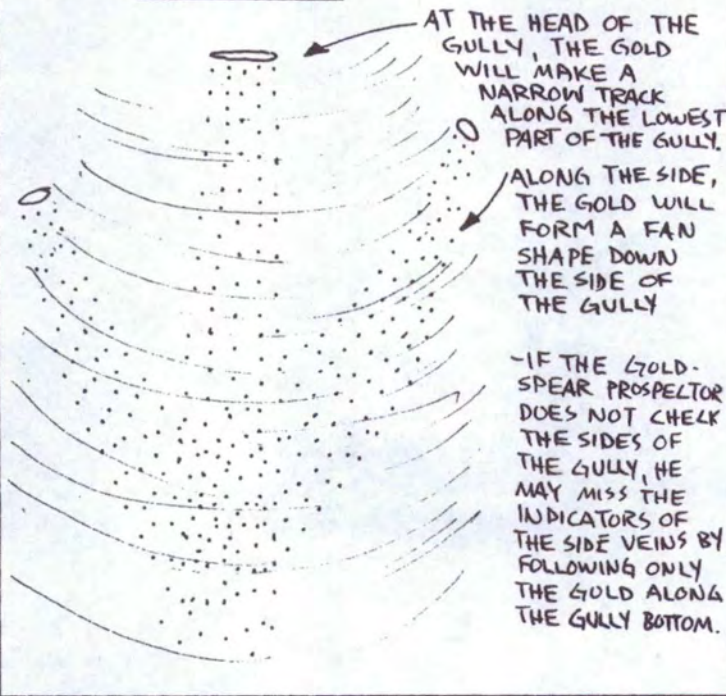 AT THE HEAD OF THE
GULLY, THE GOLD
WILL MAKE A
NARROW TRACK
ALONG THE LOWEST
PART OF THE GULLY.
ALONG THE SIDE,
THE GOLD WILL
FORM A FAN
SHAPE DOWN
THE SIDE OF
THE GULLY
-IF THE GOLD-
SPEAR PROSPECTOR
DOES NOT CHECK
THE SIDES OF
THE GULLY, HE
MAY MISS THE
INDICATORS OF
THE SIDE VEINS BY
FOLLOWING ONLY
THE GOLD ALONG
THE GULLY BOTTOM.